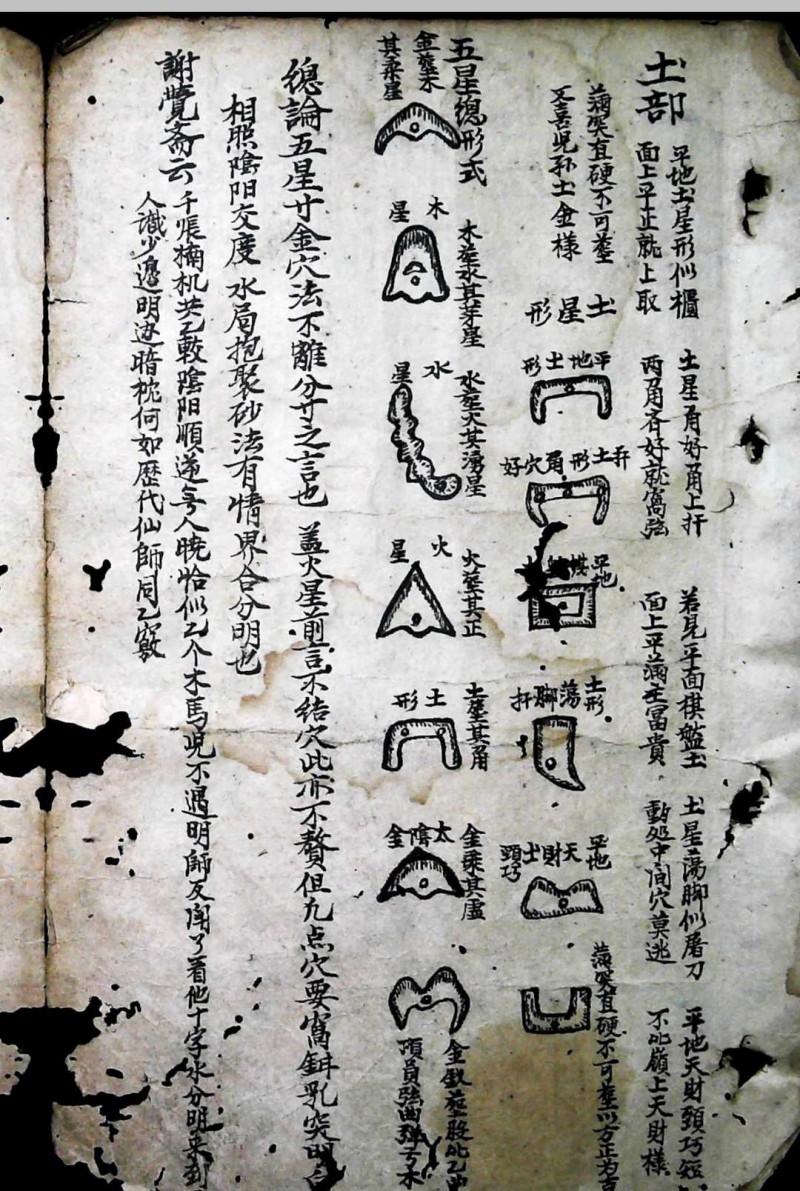 土部
平地土星形似櫃
面上平正就上取
土星角好角上扦
兩角齐好就窩弦
若見平面棋盤土
面上平满主富貴
土星蕩脚似屠刀
動処中间穴莫逃
平地天財頭巧短
不比嶺上天財樣
直硬不可塟
児孙土金樣
土星形
平地土形
扦土形角穴好
平地棋
土形蕩脚扦
平地天財土頭巧
直硬不可塟以方正为吉
五星總形式
金塟水其乘星
木星
木塟水其芽星
水星
水塟火其湧星
火星
火塟其正
土形
土塟其角
太陰金
金乘其虛
金釵塟股此乙曲
項員弦曲
總論五星廿金穴法不離分寸之言也
盖火星前言不结穴此亦不贅但凢点穴要窩鉗乳突明白
相照陰阳交度水局抱聚砂法有情界合分明也
謝覺斋云
千張楠机共乙較陰阳順逆無人曉恰似乙个木馬児不遇明師反閙了看他十字水分明来到
人識少邊明边暗枕何如歷代仙師同乙竅